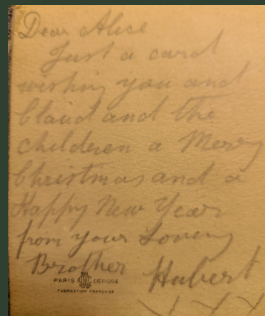 Dear Alice
Just a card
wishing you and
Claud and the
childeren a Merry
Christmas and a
Happy New Year
from your Loveing
Brother Hubert
PARIS DEPOSE
FABRICATION FRANÇAISE
X X X